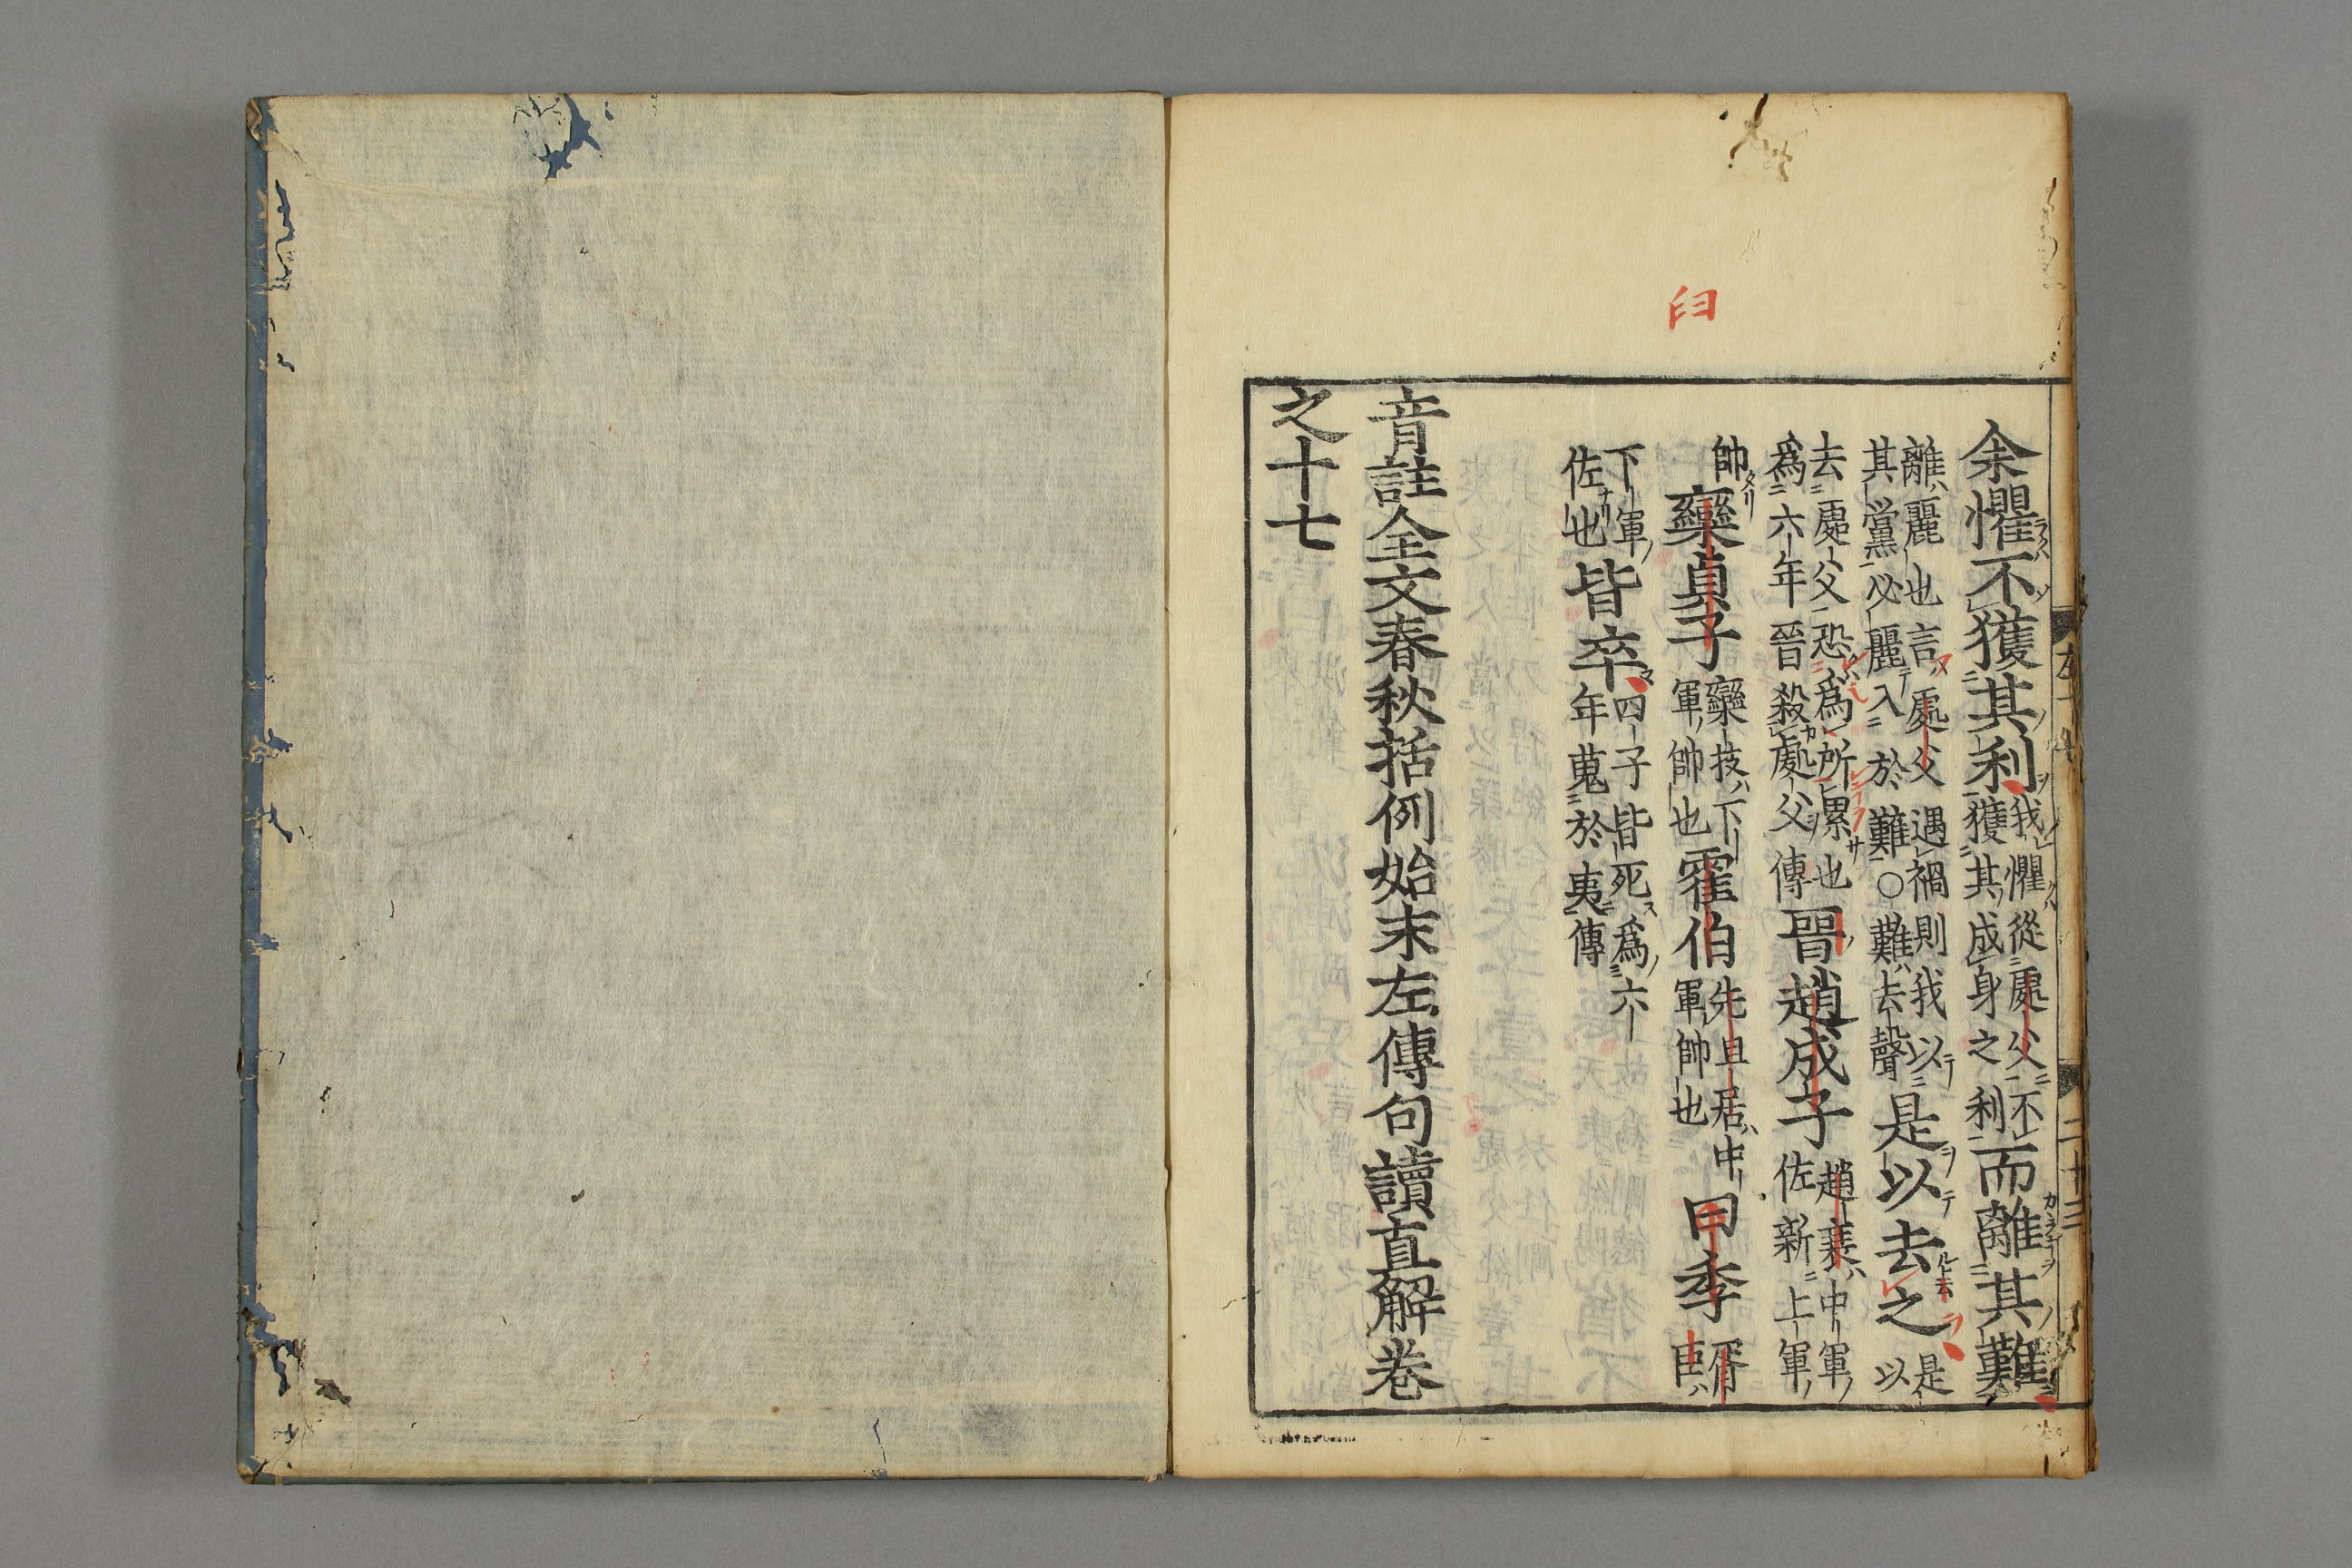 臼
余懼不獲其利我懼從處父不獲其成身之利而離其難
離麗也言處父遇禍則我以其黨必麗入於難○難去聲是以去之是以
去處父恐爲所累也爲六年晉殺處父傳晉趙成子趙衰中軍佐新上軍
帥欒貞子欒技下軍帥也霍伯先且居中軍帥也曰季胥臣
下軍佐也皆卒四子皆死爲六年蒐於夷傳
音註全文春秋括例始末左傳句讀直解卷
之十七
二十三